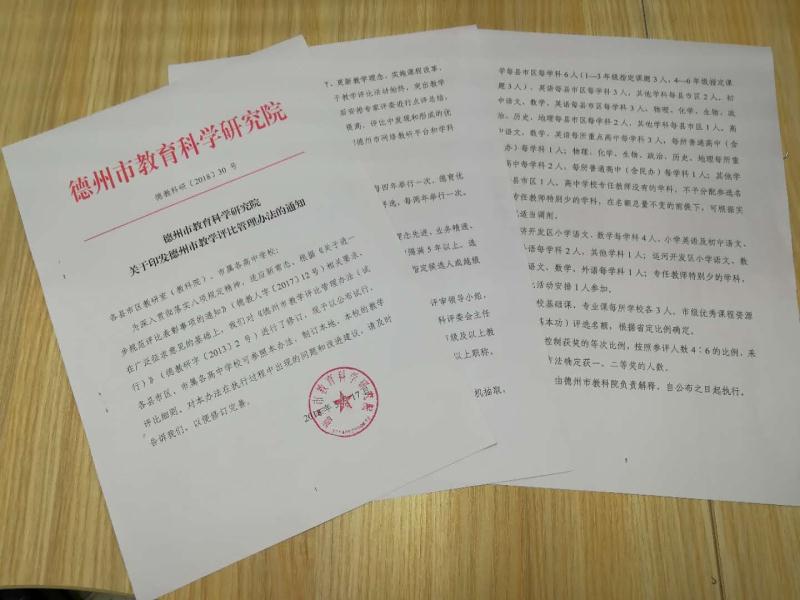 德州市教育科学研究院
德教科研〔2018〕30 号
德州市教育科学研究院
关于印发德州市教学评比管理办法的通知
各县市区教研室（教科院）、市属各高中学校：
为深入贯彻落实八项规定精神，适应新常态，依据《关于进一
步规范评比表彰事项的通知》（德教人字〔2017〕12号）相关要求，
在广泛征求意见的基础上，我们对《德州市教学评比管理办法（试
行）》（德教研字〔2013〕2 号）进行了修订，现予以公布试行。
各县市区、市属各高中学校可参照本办法，制订本地、本校的教学
评比细则。对本办法在执行过程中出现的问题和改进建议，请及时
告诉我们，以便修订完善。
市教育科学研究院
1
、更新教学理念、实施课程改革、
于教学评比活动始终，突出教学
后安排专家评委进行点评总结，
提高。评比中发现和形成的优
德州市网络教研平台和学科
每四年举行一次，德育优
评选，每两年举行一次。
理念先进，业务精通，
隔满 5 年以上，选
暂定候选人或越级
评审领导小组，
科评委会主任
级及以上教
以上职称。
机抽取。
学每县市区每学科 6 人（1—3 年级指定课题 3 人，4—6 年级指定课
题 3 人）、英语每县市区每学科 3 人，其他学科每县市区 2 人，初
中语文、数学、英语每县市区每学科 3 人，物理、化学、生物、政
治、历史、地理每县市区每学科 2 人，其他学科每县市区 1 人。高
中语文、数学、英语每所重点高中每学科 3 人，每所普通高中（含
民办）每学科 1 人；物理、化学、生物、政治、历史、地理每所重
高中每学科 2 人，每所普通高中（含民办）每学科 1 人；其他学
县市区 1 人。高中学校专任教师没有的学科，不予分配参选名
专任教师特别少的学科，在名额总量不变的前提下，可根据实
适当调剂。
济开发区小学语文、数学每学科 4 人，小学英语及初中语文、
语每学科 2 人，其他学科 1 人；运河开发区小学语文、数
语文、数学、外语每学科 1 人；专任教师特别少的学科，
活动安排 1 人参加。
校基础课，专业课每所学校各 3 人，市级优秀课程资源
基本功）评选名额，根据省定比例确定。
控制获奖的等次比例，按照参评人数 4∶6 的比例，采
方法确定获一、二等奖的人数。
由德州市教科院负责解释，自公布之日起执行。
5